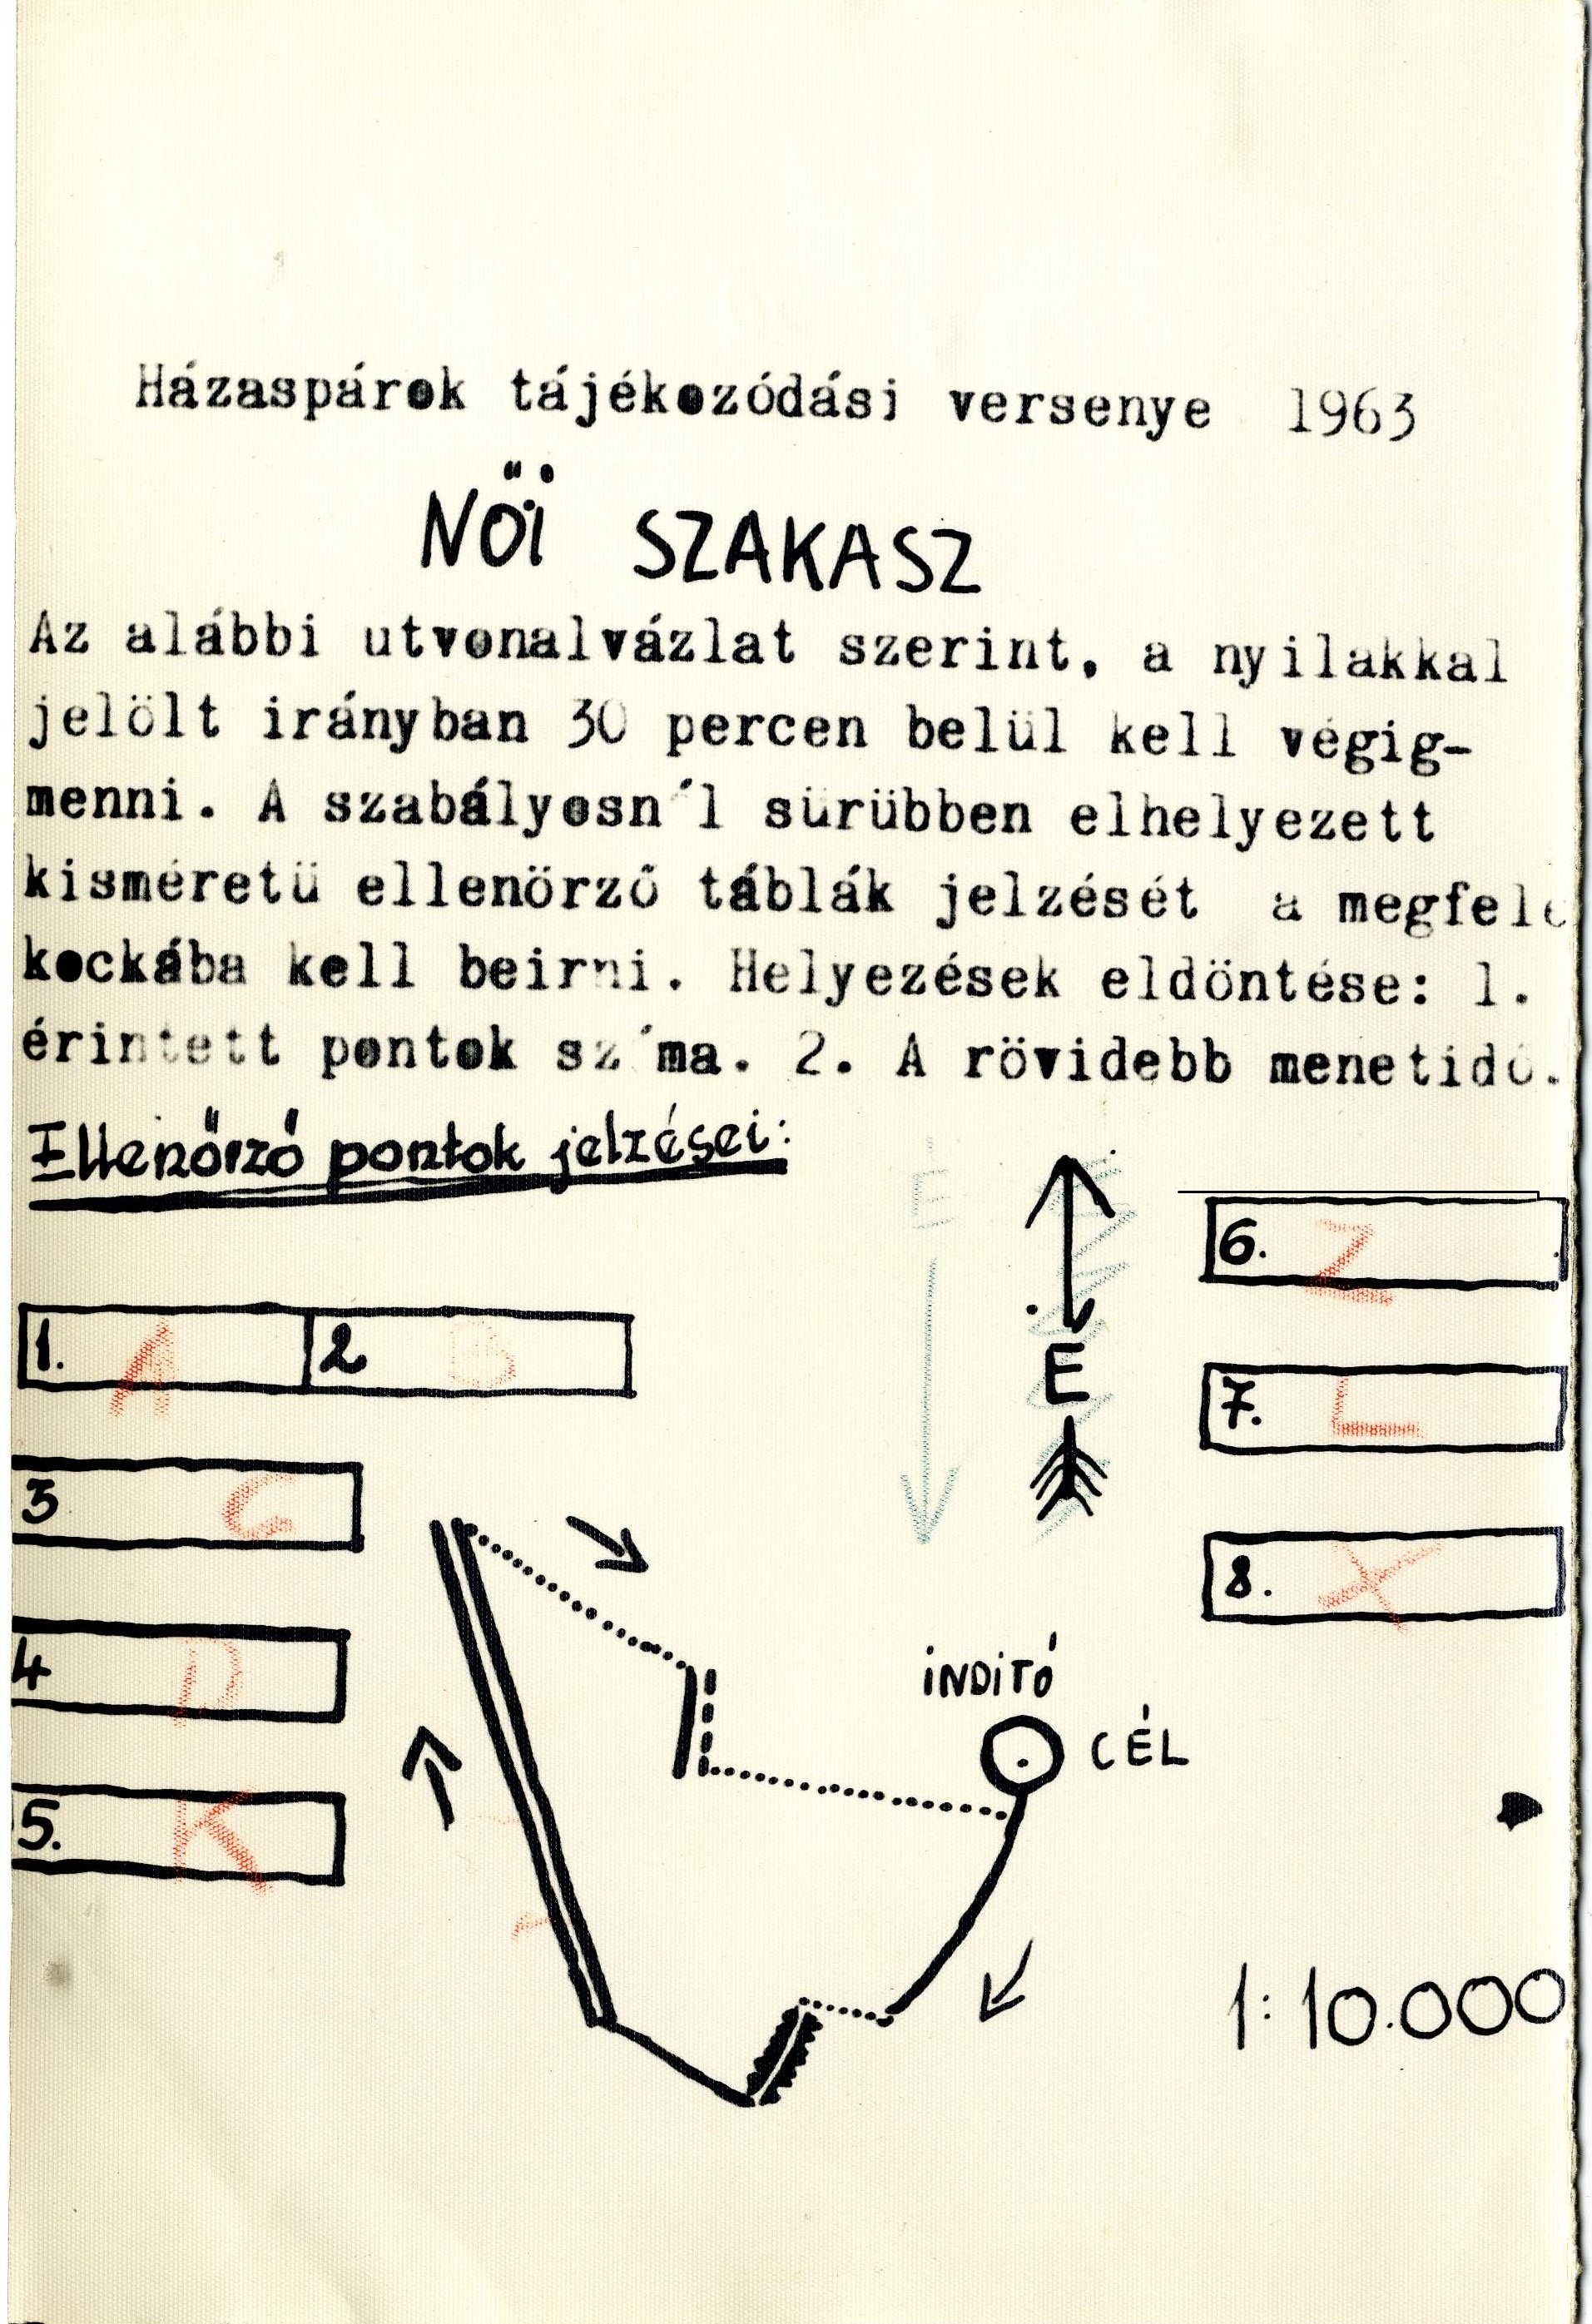 Házaspárok tájékozódási versenye 1963
NŐI SZAKASZ
Az alábbi utvonalvázlat szerint, a nyilakkal
jelölt irányban 30 percen belül kell végig-
menni. A szabályosn´l sürübben elhelyezett
kisméretü ellenörző táblák jelzését a megfele
kockába kell beirni. Helyezések eldöntése: 1.
érintett pontok sz´ma. 2. A rövidebb menetidő.
Ellenőrző pontok jelzései:
E
E
1. A
2 B
3 C
4 D
5. K
6. Z
7. L
8. X
INDITÓ
CÉL
1:10.000